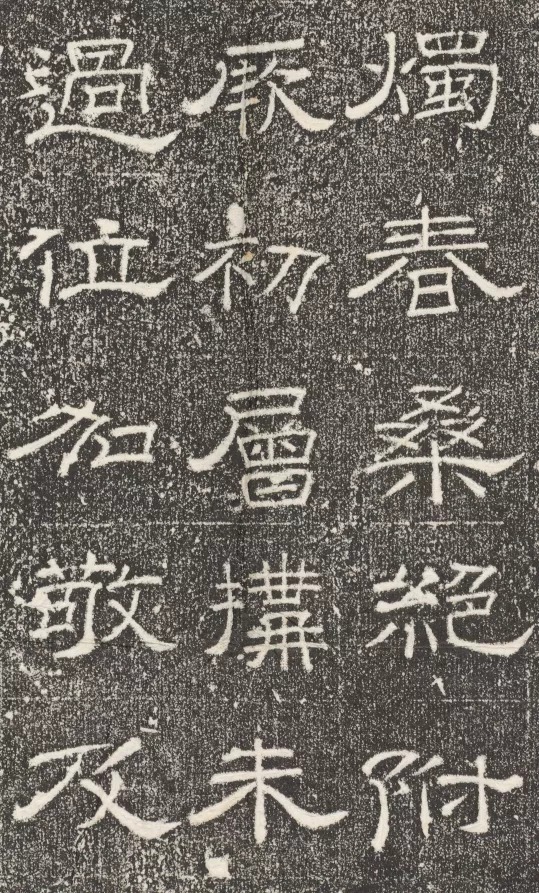 燭春桑絕附
厥初層搆未
過位加敬及